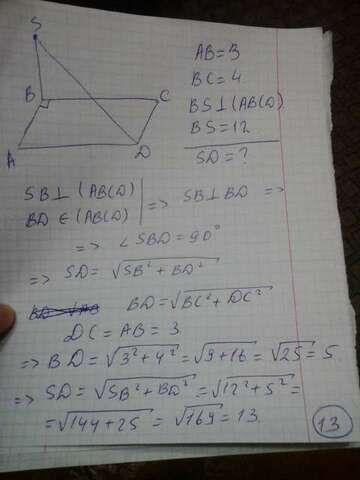 S
B
C
A
D
AB=3
BC=4
BS⊥(ABCD)
BS=12
SD=?
SB⊥(ABCD)
BD∈(ABCD)
=> SB⊥BD =>
=> ∠SBD=90°
=> SD=√SB²+BD²
BD=√BC²+DC²
DC=AB=3
=> BD=√3²+4²=√9+16=√25=5
=> SD=√SB²+BD²=√12²+5²=
=√144+25=√169=13
13